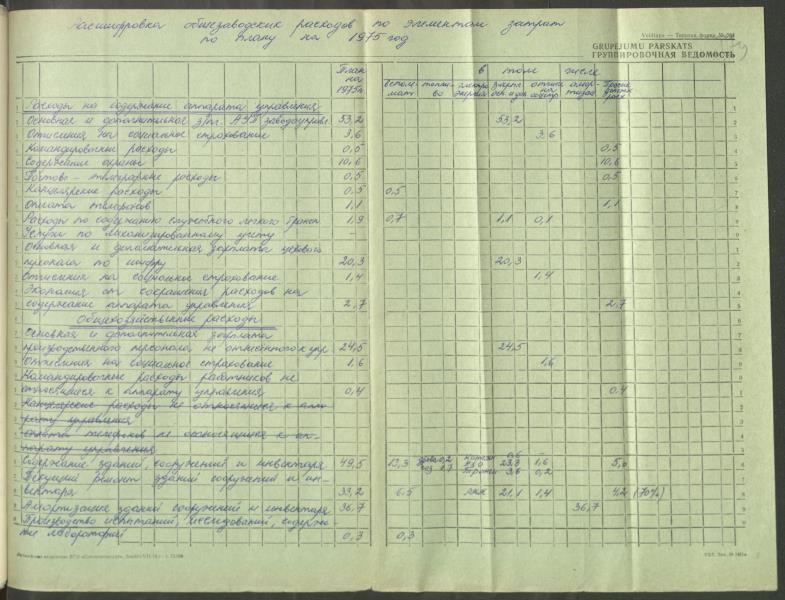 Расшифровка общезаводских расходов по элементам затрат
по плану на 1975 год
GRUPEJUMU PĀRSKATS
ГРУППИРОВОЧНАЯ ВЕДОМОСТЬ
План на 1975г
в том числе
вспом. мат. топли-во электро энергия зарпл. осн. и доп. отчисл. на соцстр. аморт-изац.
Расходы на содержание аппарата управления
Основная и дополнительная з/пл. АУП заводоуправл. 53,2 53,2
Отчисления на социальное страхование 3,6 3,6
Командировочные расходы 0,5 0,5
Содержание охраны 10,6 10,6
Почтово - телеграфные расходы 0,5 0,5
Канцелярские расходы 0,5 0,5
Оплата телефонов 1,1 1,1
Расходы по содержанию служебного легкого трансп. 1,9 0,7 1,1 0,1
Услуги по механизированному учету –
Основная и дополнительная зарплата цехового
персонала по шифру 20,3 20,3
Отчисления на социальное страхование 1,4 1,4
Экономия от сокращения расходов на
содержание аппарата управления 2,7 2,7
Общехозяйственные расходы
Основная и дополнительная зарплата
производственного персонала не отнесенного к упр. 24,5 24,5
Отчисления на социальное страхование 1,6 1,6
Командировочные расходы работников не
относящиеся к аппарату управления 0,4 0.4
Канцелярские расходы не относящиеся к аппа-
рату управления
Оплата телефонов не относящихся к ап-
парату управления
Содержание зданий, сооружений и инвентаря 49,5 13,3 0,2 газ 1.7 0,6 23,3 3,6 1,6 0,2 5,0
Текущий ремонт зданий сооружений и ин-
вентаря 33,2 6.5 21,1 1,4 4,2 (70%)
Амортизация зданий сооружений и инвентаря 36,7 36,7
Производство испытаний, исследований, содержа-
ние лабораторий 0,3 0,3